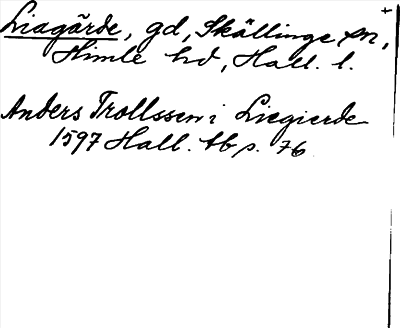 Liagärde, gd, Skällinge sn,
Himle hd, Hall. l.
Anders Trollssen i Liegierde
1597 Hall. tb s. 76